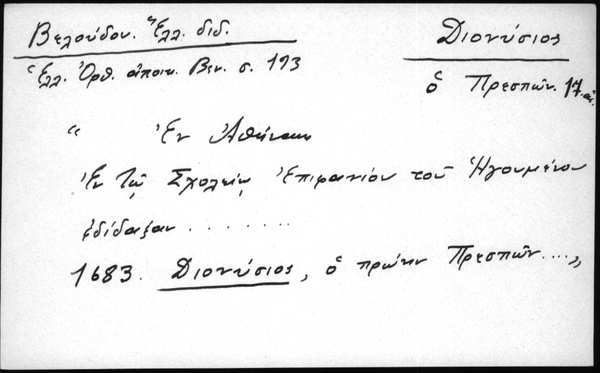 Βελούδου. Ἑλλ. διδ.
Διονύσιος
Ἑλλ. Ὀρθ. ἀποικ. Βεν. σ. 193
ὁ Πρεσπῶν. 17 αἰ.
“ Ἐν Ἀθήναις
Ἐν τῷ Σχολείῳ Ἐπιφανίου τοῦ Ἡγουμένου
ἐδίδαξαν ........
1683. Διονύσιος, ὁ πρώην Πρεσπῶν....„